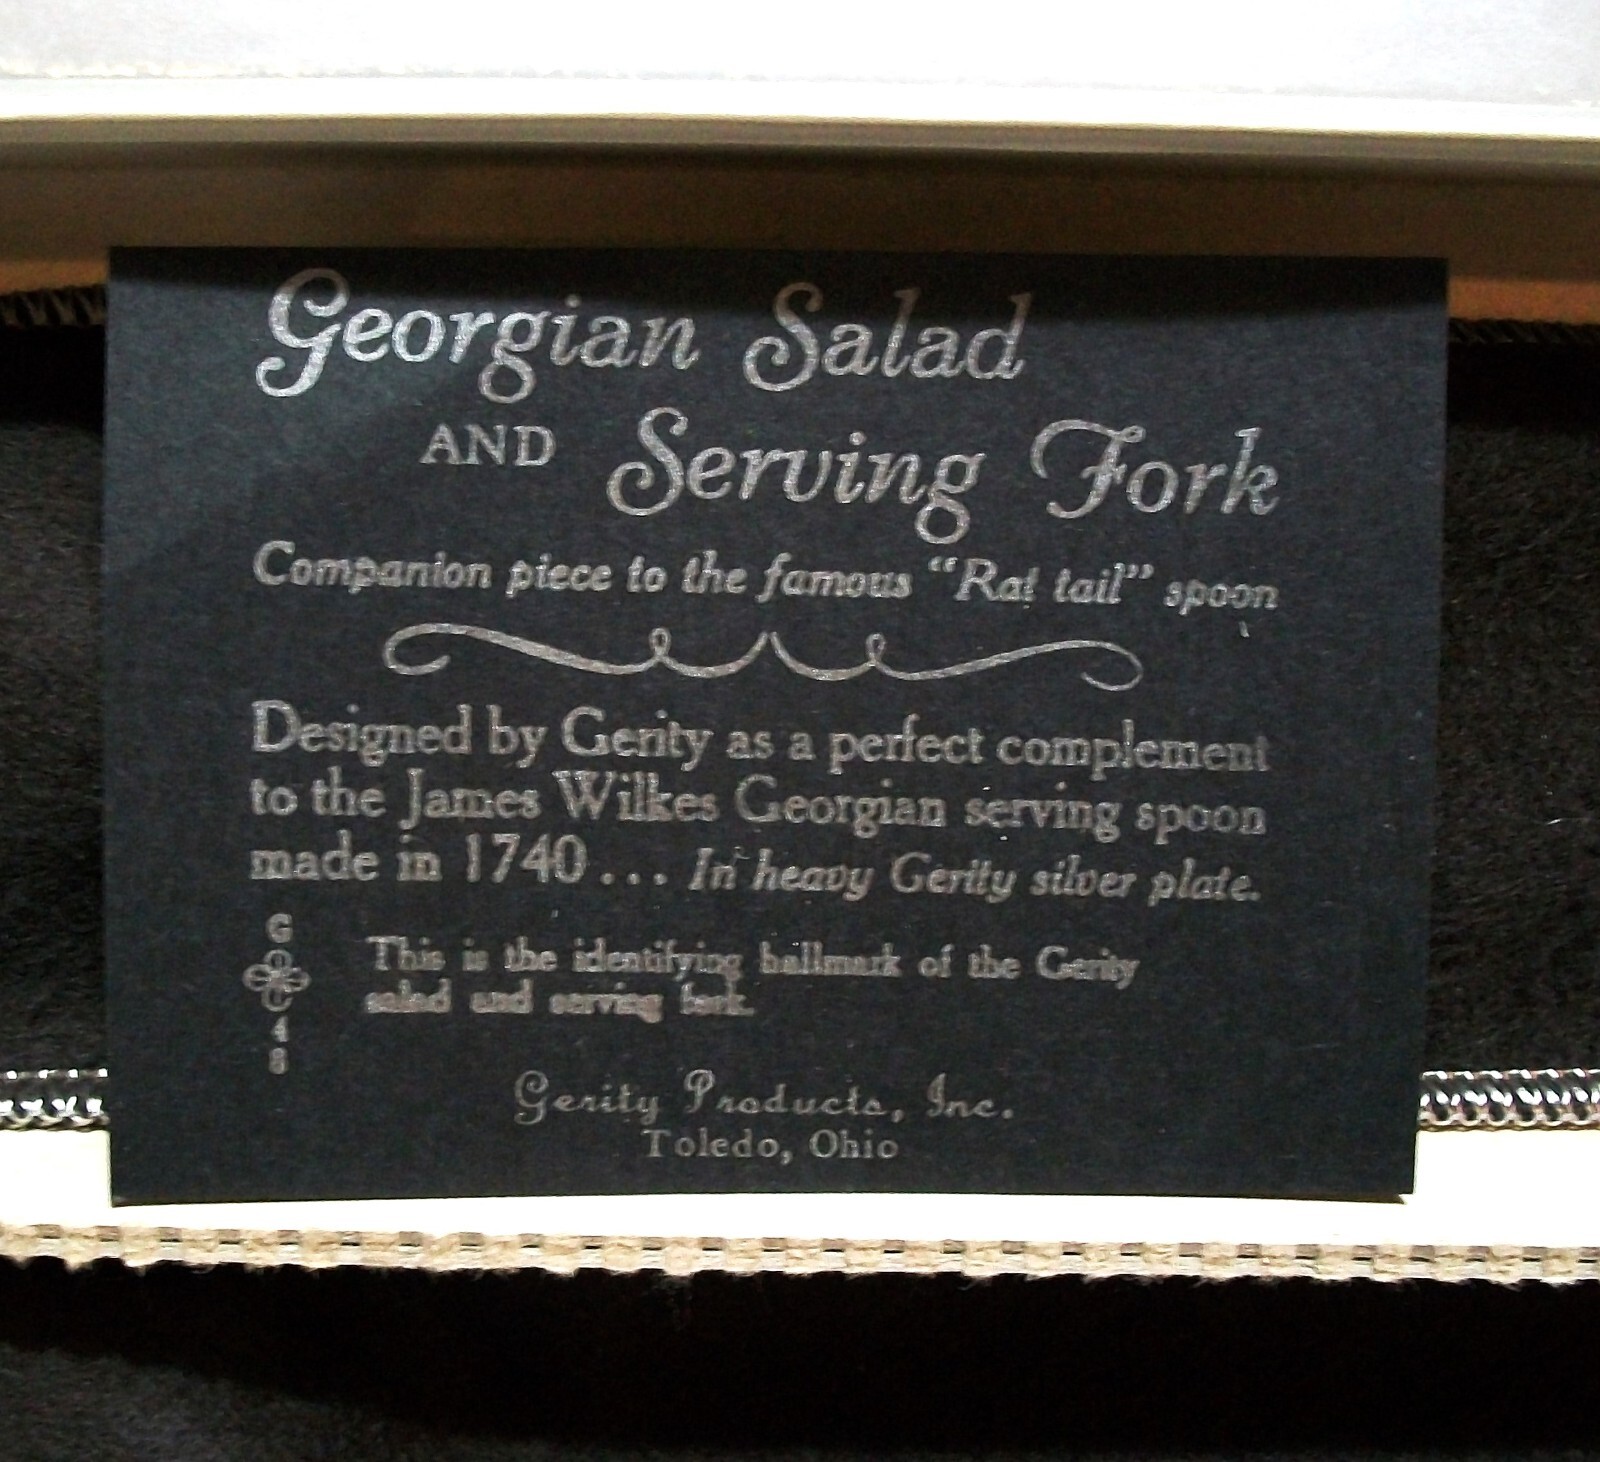 Georgian Salad
AND Serving Fork
Companion piece to the famous "Rat tail" spoon
Designed by Gerity as a perfect complement
to the James Wilkes Georgian serving spoon
made in 1740... In heavy Gerity silver plate.
G
4
8
This is the identifying hallmark of the Gerity
salad and serving fork.
Gerity Products, Inc.
Toledo, Ohio